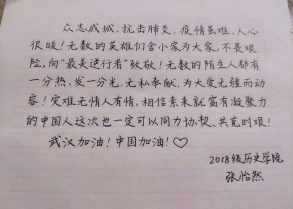 众志成城，抗击肺炎，疫情虽难，人心
很暖！无数的英雄们舍小家为大家，不畏艰
险，向“最美逆行者”致敬！无数的陌生人都有
一分热，发一分光，无私奉献，为大爱无疆而动
容！灾难无情人有情，相信素来就富有凝聚力
的中国人这次也一定可以同力协契、共克时艰！
武汉加油！中国加油！♡
2018级历史学院
张怡然